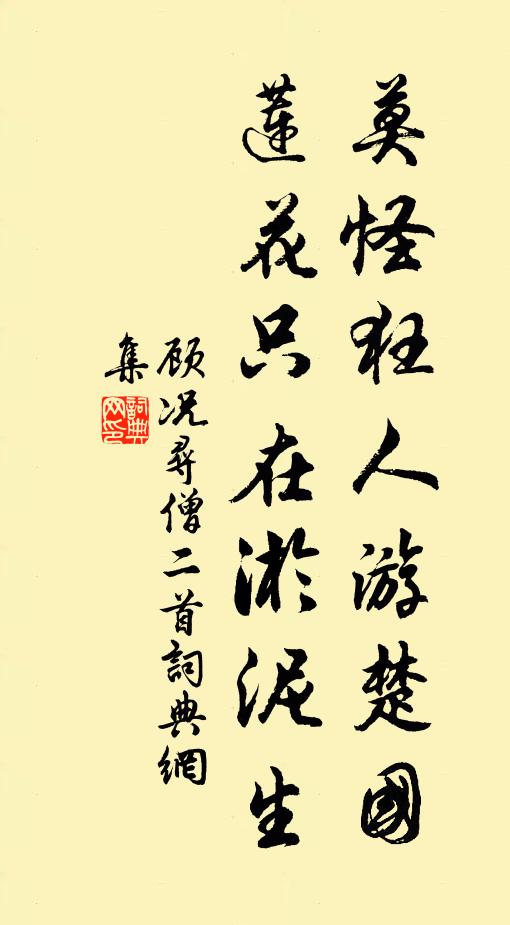 莫怪狂人游楚國
蓮花只在淤泥生
顾况尋僧二首詞典網
集
詞典
网印